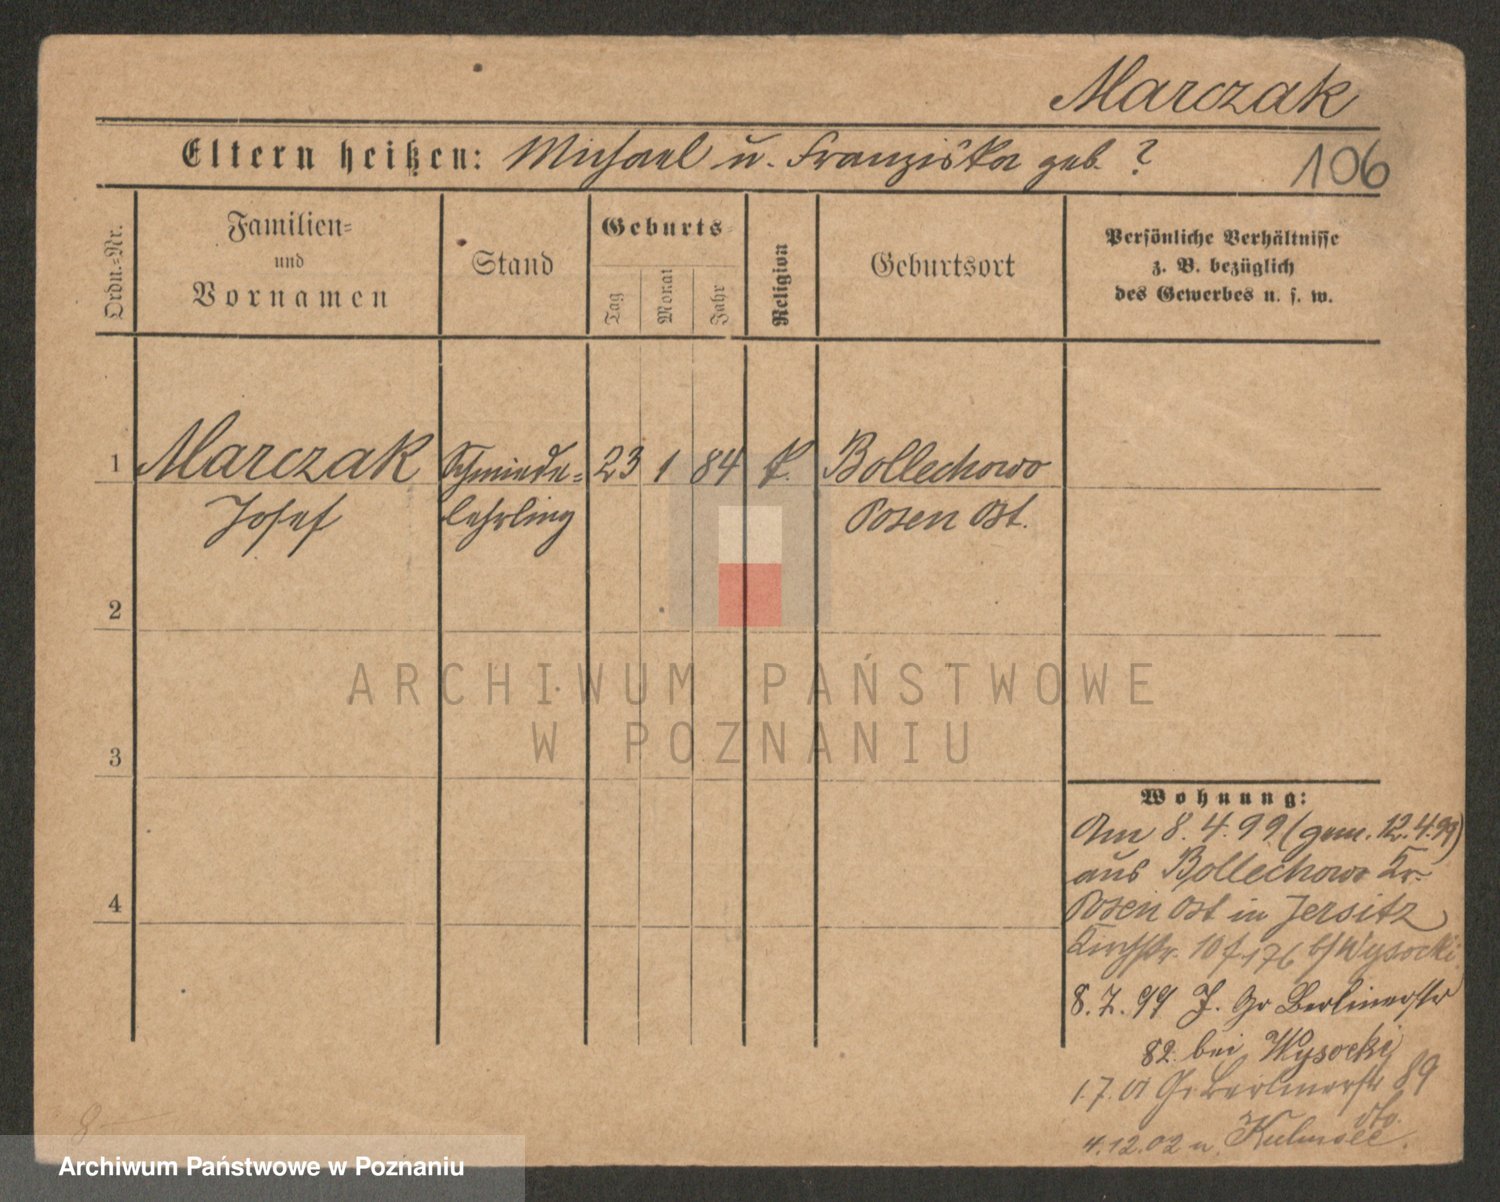 Marczak
Eltern heißen: Michael u. Franziska geb. ?
106
Ordn.-Nr.
Familien-
und
Vornamen
Stand
Geburts-
Tag
Monat
Jahr
Religion
Geburtsort
Persönliche Verhältnisse
z. B. bezüglich
des Gewerbes u. s. w.
1 Marczak Schmiede- 23 1 84 k. Bollechowo
Josef lehrling Posen Ost.
2
3
4
ARCHIWUM PAŃSTWOWE
W POZNANIU
Wohnung:
Am 8.4.99 (gem. 12.4.99)
aus Bollechowo Kr.
Posen Ost in Jersitz
Kirchstr. 10 b/Wysocki
8.7.99 J. Gr Berlinerstr
82. bei Wysocki
1.7.01 Gr Berlinerstr 89
dto.
4.12.02 n. Kulmsee.
Archiwum Państwowe w Poznaniu